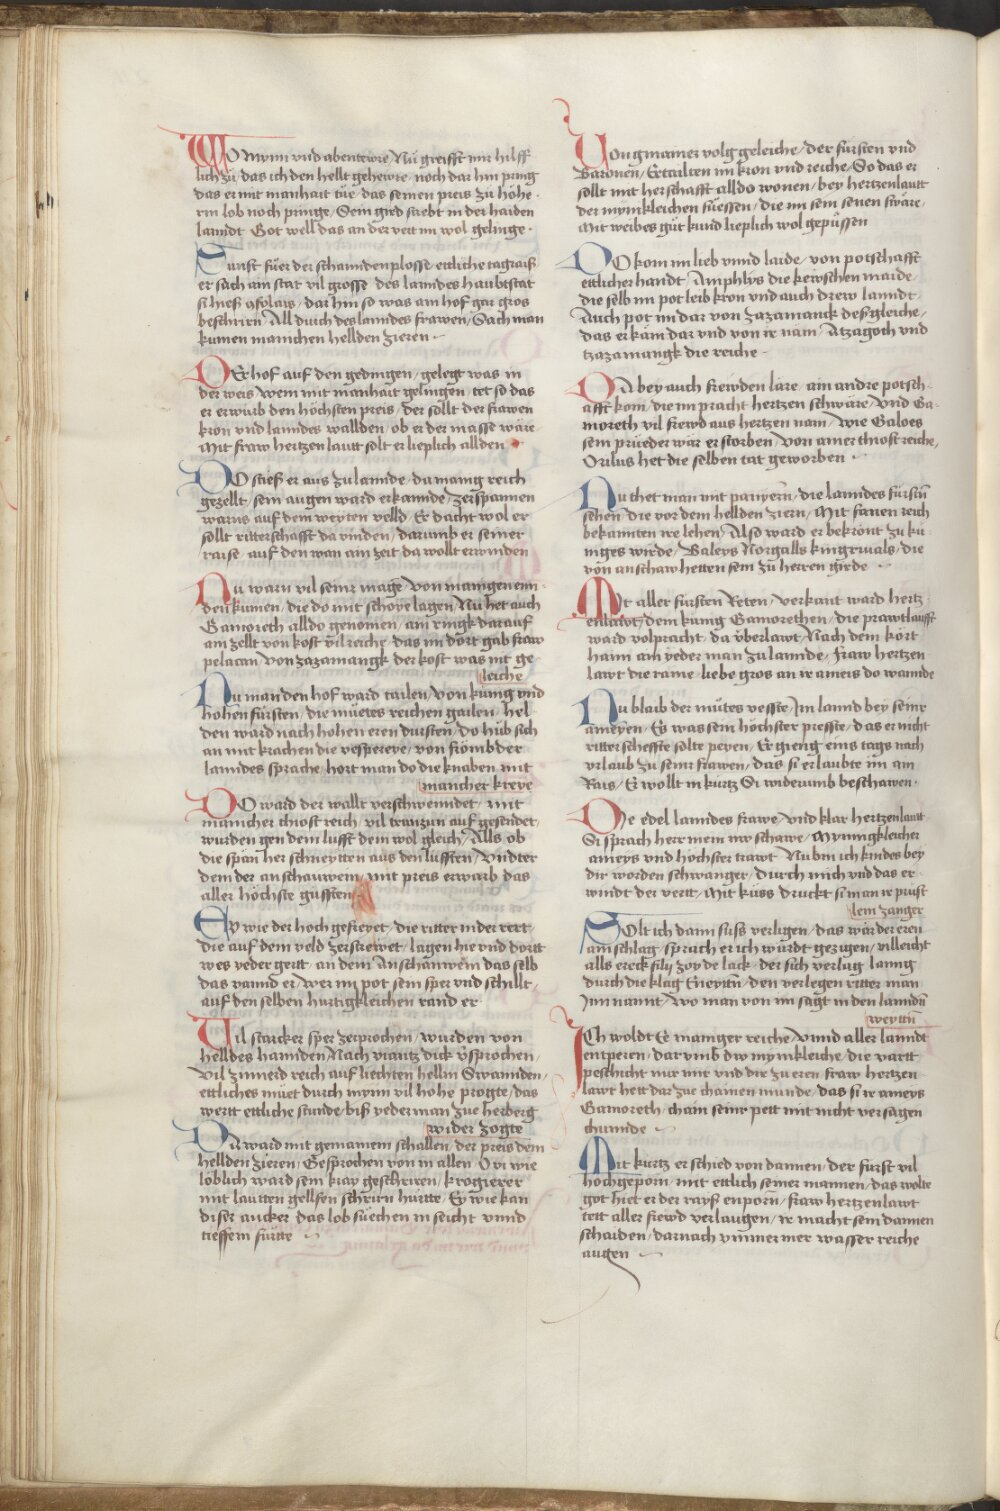 WO Mynn vnd abentewre Nu greifft mir hilff
lich zů das ich den hellt gehewre noch dar hin pring
das er mit manhait tůe das seinen preis zů höhe
rm lob noch pringe Sein gird strebt in der haiden
lanndt Got well das an der vert im wol gelinge
Sunst fůer der schanndenplosse ettliche tagraiß
er sach ain stat vil grosse des lanndes haubtstat
si hies afolais dar hin so was am hof gar gros
beschrirn All durch des lanndes frawen Sach man
kumen manichen hellden zieren
Der hof auf den gedingen gelegt was in
der weis Wem mit manhait gelingen tet so das
er erwurb den höchsten preis der sollt der frawen
kron vnd lanndes wallden ob er der masse wäre
Mit fraw hertzen lautt solt er lieplich allden
DO stieß er aus zu lannde da manig reich
gezellt sein augen ward erkannde zerspannen
warns auf dem weyten velld Er dacht wol er
sollt ritterschafft da vinden darumb er seiner
raise auf den wan ain zeit da wollt erwinden
Nu warn vil seinr mage von manigen enn
den kumen die do mit schoye lagen Nu het auch
Gamoreth alldo genomen ain ringk darauf
ain zellt von kost vil reiche das im dort gab fraw
pelacan von zazamangk der kost was nit ge
leiche
Nu man den hof ward tailen von kunig vnd
hohen fürsten die müetes reichen gailen hel
den ward nach hohen eren dursten do hůb sich
an mit krachen die vespereye von frömbder
lanndes sprache hort man do die knaben mit
mancher kreye
DO ward der wallt verschwenndet mit
mancher thiost reich vil trunzun auf gesendet
wurden gen dem lufft dem wol gleich Alls ob
die span her schneytten aus den lufften Vndter
dem der anschauwein mit preis erwarb das
aller höchste gufften
Ey wie der hoch gefreyet die ritter nider rert
die auf dem veld zerstrewet lagen hie vnd dortt
wes yeder gertt an dem Anschanwein das selb
das vannd er wer im pot sein sper vnd schillt
auf den selben hurtigkleichen rand er
Vil starcker sper zerprochen wurden von
helldes hannden Nach viantz dick v̈sprochen
Vil zimierd reich auf liechten hellm Swannden
ettliches müet durch mynn vil hohe progte das
wertt ettliche stunde biß yederman zue herberg
wider zogte
DA ward mit gemainem schallen der preis dem
hellden zieren Gesprochen von in allen Ovi wie
löblich ward sein kray geschriren krogierer
mit lautten gellfen schrirn hurtte Ey wie kan
diser ancker das lob süechen in seicht vnnd
tieffem fürtte
Von gmainer volg geleiche der fürsten vnd
Baronen Ertailten im kron vnd reiche So das er
sollt mit herschafft alldo wonen bey hertzenlautt
der mynkleichen süessen die im sein senen swäre
Mit weibes güt kund lieplich wol gepüssen
DO kom im lieb vnnd laide von potschafft
ettlicher handt Amphlys die kewschen maide
die selb im pot leib kron vnd auch drew lanndt
Auch pot im dar von zazamanck des gleiche
das er käm dar vnd von ir näm Atzagoch vnd
tzazamangk die reiche
DA bey auch frewden läre ain andre potsch
afft kom die im pracht hertzen schwäre Vnd Ga
moreth vil frewd aus hertzen nam wie Galoes
sein prüeder wär erstorben Von ainer thiost reiche
Orilus het die selben tat geworben
Nu thet man mit panyern die lanndes fürstn̄
sehen die vor dem hellden ziern Mit fanen reich
bekannten ire lehen Also ward er bekrönt zu kü
niges wirde Waleys Norgalls kingrivals die
von anschaw hetten sein zü herren girde
Mit aller fürsten Reten verkunt ward hertz
enlautt dem künig Gamorethen die prawtlaufft
ward volpracht da v̈berlawt Nach dem kört
haim ain yeder man zu lannde fraw hertzen
lawt die raine liebe gros an ir ameis do wannde
Nu blaib der mütes vesste Im lannd bey seinr
ameyen Es was sein höchster presste das er nicht
ritterscheffte solte peyen Er gieng eins tags nach
vrlaub zu seinr frawen das si erlaubte im ain
Rais Er wollt in kurtz Si widerumb beschawen
Die edel lanndes frawe vnd klar hertzenlautt
Si sprach herr mein nw schawe Mynnigkleicher
ameys vnd höchster trawt Nu bin ich kindes bey
dir worden schwanger durch mich vnd das er
windt der vertt Mit küss druckt si man ir prust
lem zanger
Solt ich dann suss verligen das wär der eren
ain schlag sprach er ich wurdt gezigen villeicht
alls ereck filij zoy de lack der sich verlag lanng
durch die klag Eneyttn̄ den verlegen ritter man
In nannt wo man von im sagt in den lanndn̄
weyttn̄
Ich woldt Ee maniger reiche Vnnd aller lanndt
entperen darumb dw mynkleiche die vartt
peschicht nur mir vnd dir zu eren fraw hertzen
lawt hett dar zue chainen munde das si ir ameys
Gamoreth chain seinr pett mit nicht versagen
chunnde
Mit kurtz er schied von dannen der fürst vil
hochgeporn mit ettlich seiner mannen das wolte
got hiet er der rayß enporn fraw hertzenlawt
tett aller frewd verlaugen ir macht sein dannen
schaiden darnach ymmermer wasser reiche
augen